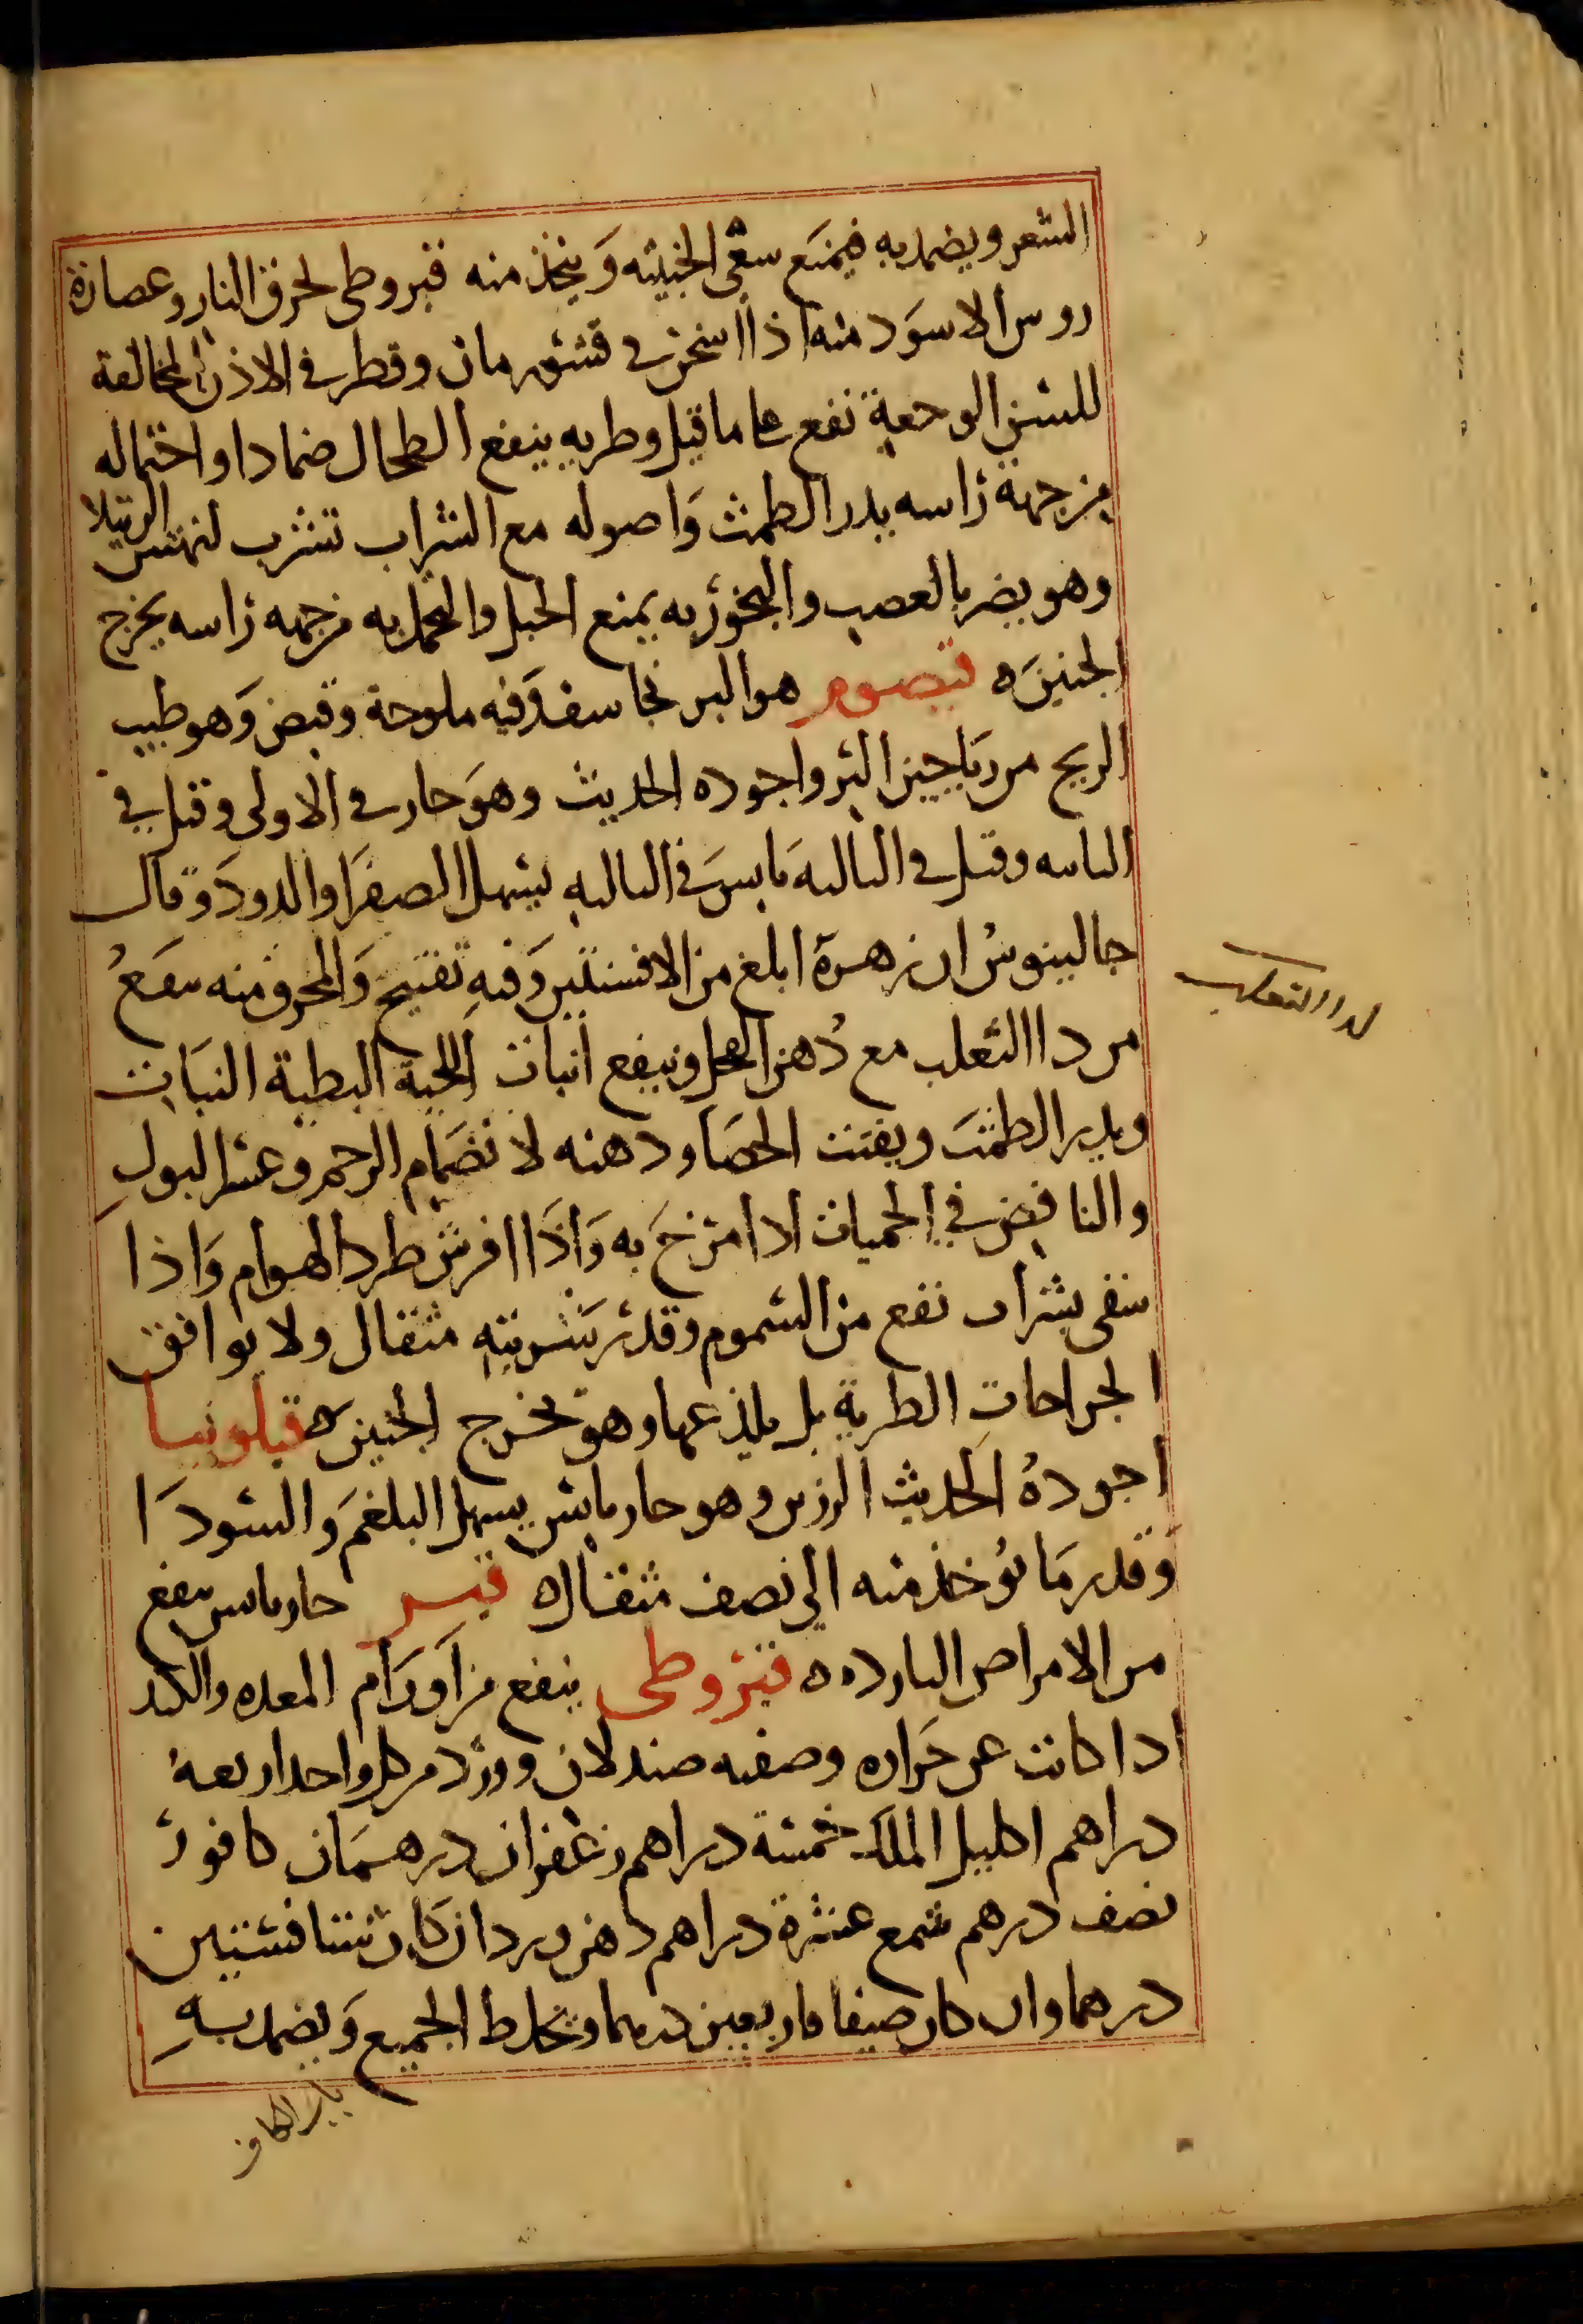 الشعر ويضمد به فيمنع سعى الخبيثه وَيتخذ منه قيروطى لحرق النار وعصارة
روس الاسوَد منه اذا اسخن في قشر رمان وقطر في الاذن المخالفة
للسن الوجعة نفع على ما قيل وطريه ينفع الطحال ضمادا واحتماله
من جهة راسه يدر الطمث وَاصوله مع الشراب تشرب لنهش الرتيلا
وهو يضر بالعصب والبخور به يمنع الحبل والتحمل به من جهه راسه يخرج
الجنين ه قيصوم هو البرنجاسف وَفيه ملوحة وقبض وَهو طيب
الريح من رياحين البر واجوده الحديث وهوَ حار في الاولى وقيل في
الثانيه وقيل في الثالثه يابس في الثالثه يسهل الصفرا والدود وقال
جالينوس ان زهرة ابلغ من الافسنتين وَفيه تفتيح وَالمحرق منه ينفع
من داا الثعلب مع دُهن الفجل وينفع انبات اللحية البطية النبات
ويدر الطمث ويفتت الحصا ودهنه لانضمام الرحم وعسر البول
والنافض في الحميات اذا امرخ به وَاذا افرش طرد الهوام وَاذا
سقى بشراب نفع من السموم وقدر شربته مثقال ولا يوافق
الجراحات الطرية بل يلذعها وهو يخرج الجنين ه قيلونيا
اجودهُ الحديث الرزين وهو حار يابس يسهل البلغم وَالسودَا
وَقدر مَا يُوخذ منه الى نصف مثقال ه قيسر حار يابس ينفع
من الامراض البارده ه قيروطى ينفع من اَورَام المعده والكبد
اذا كانت عن حَراره وصفته صندلان وورد من كل واحد اربعة
دراهم اكليل الملك خمسة دراهم زعفران درهمَان كافور
نصف درهم شمع عشرة دراهم دهن ورد ان كان شتا فستين
درهما وان كان صيفا فاربعين درهما ويخلط الجميع وَيضمد به
لداا الثعلب